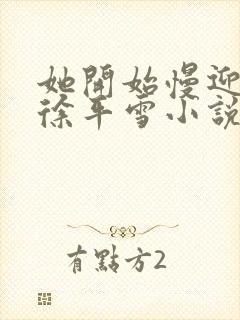 她開始慢迎
徐平雪小說
有點方2